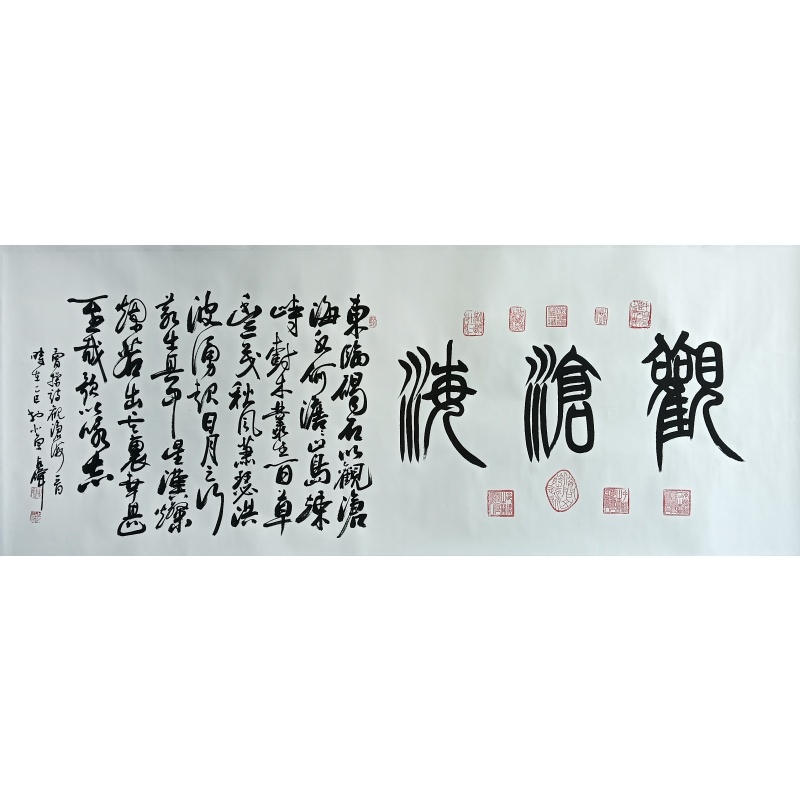 觀滄海
東臨碣石以觀滄
海水何澹澹山島竦
峙樹木叢生百草
豐茂秋風蕭瑟洪
波湧起日月之行
若出其中星漢燦
爛若出其裏幸甚
至哉歌以詠志
曹操詩觀滄海一首
歲在乙巳